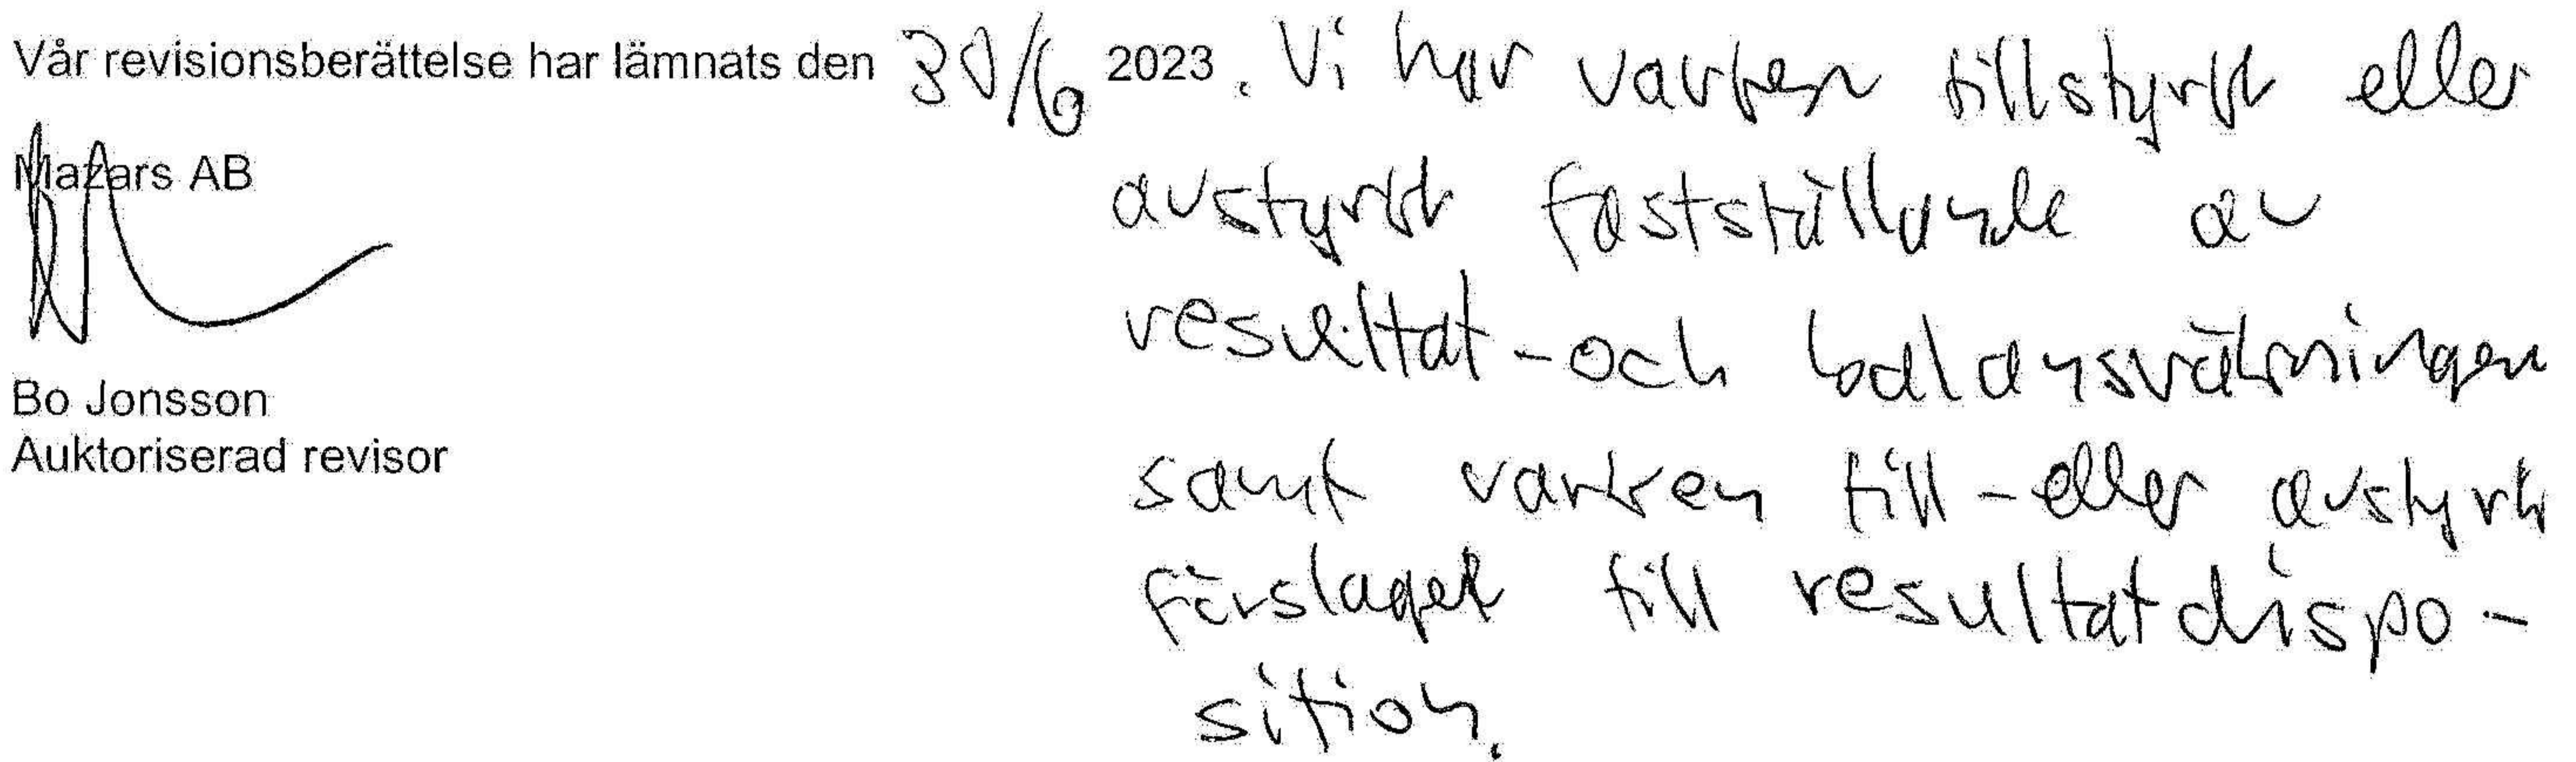 Vår revisionsberättelse har lämnats den 30/6 2023. Vi har varken tillstyrkt eller
avstyrkt fastställande av
resultat-och balansräkningen
samt varken till-eller avstyrkt
förslaget till resultatdispo-
sition.
Mazars AB
Bo Jonsson
Auktoriserad revisor